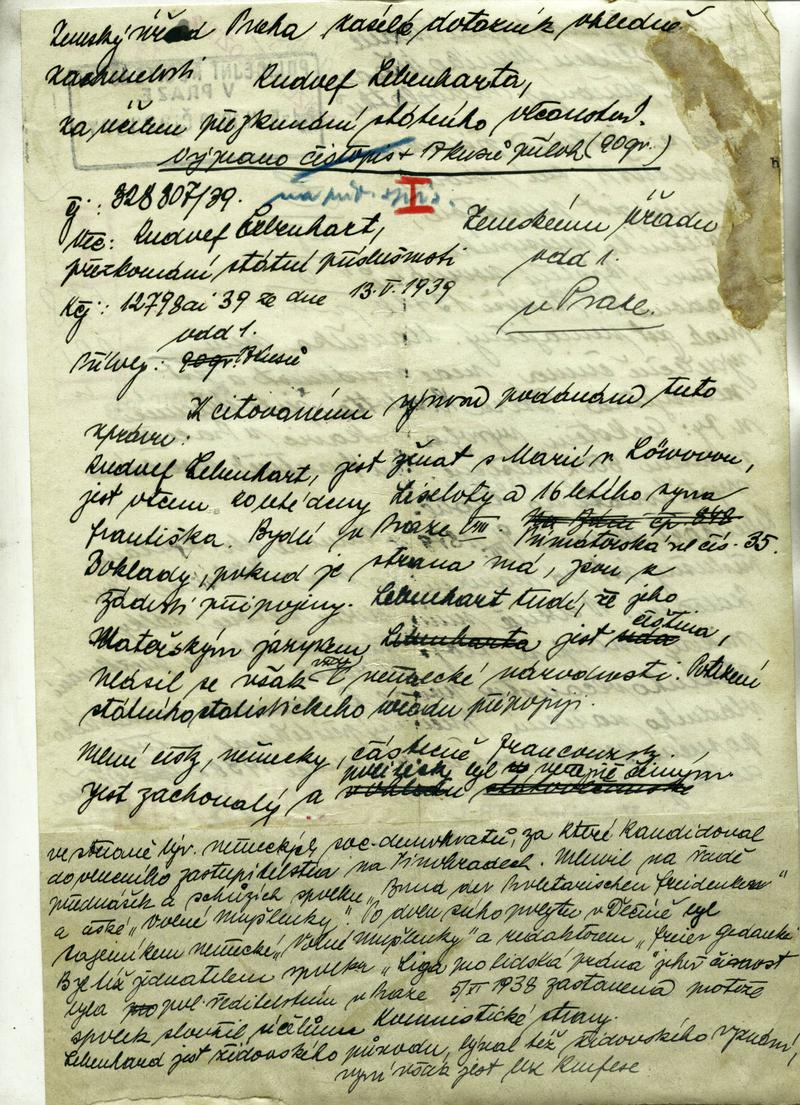 Zemský úřad Praha zaslal dotazník ohledně
zachovalosti Rudolf Lebenharta,
za účelem přezkoumání státního občanství.
Vypsáno čistopis + 17 kusů příloh (90gr.)
čj: 328 807/39. I
Věc: Rudolf Lebenhart, Zemskému úřadu
přezkoumání státní příslušnosti odd 1.
Kčj: 12798ai 39 ze dne 13.V.1939 v Praze.
odd 1.
Příloy: kusů
K citovanému výnosu podávám tuto
zprávu:
Rudolf Lebenhart, jest ženat s Marií r. Löwovou,
jest otcem 20leté dcery Liseloty a 16letého syna
Františka. Bydlí v Praze VII. Na Zátory čp. 848
Primátorská ul čís. 35.
Doklady, pokud je strana má, jsou k
žádosti připojeny. Lebenhart tvrdí, že jeho
čeština,
Mateřským jazykem Lebenharta jest
hlásil se však vždy k německé národnosti. Potvrzení
státního statistického úřadu připojuji.
Mluví česky, německy, částečně francouzsky.
politicky byl veřejně činným
Jest zachovalý a
ve straně býv. německých soc-demokratů, za které kandidoval
do obecního zastupitelstva na Vinohradech. Mluvil na řadě
přednášek a schůzích spolku „Bund der Proletarischen Freidenker"
a české „Volné myšlenky". Po dobu svého pobytu v Děčíně byl
tajemníkem německé „Volné myšlenky" a redaktorem „freier gedanke"
Byl též jednatelem spolku „Liga pro lidská práva" jehož činnost
byla pol. ředitelstvím v Praze 5/XI 1938 zastavena protože
spolek sloužil účelům Komunistické strany.
Lebenhard jest židovského původu, býval též židovského vyznání,
nyní však jest bez Konfese.